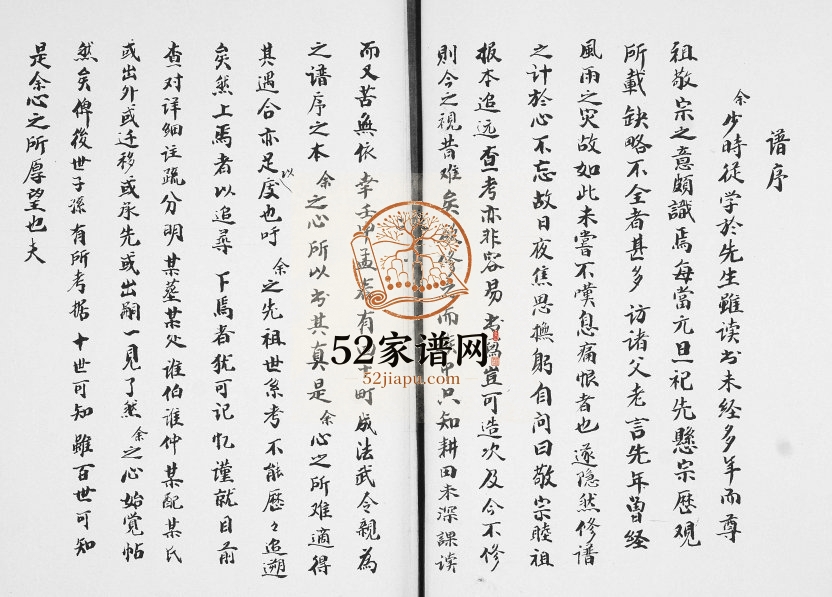 谱序
余少時從学於先生雖读书未经多年而尊
祖敬宗之意頗識焉每當元旦祀先懸宗歷观
所載缺略不全者甚多访诸父老言先年曽经
風雨之灾故如此未嘗不嘆息痛恨者也遂隐然修谱
之计於心不忘故日夜焦思撫躬自问曰敬宗睦祖
报本追远查考亦非容易书 豈可造次及今不修
則今之視昔难矣 修 而 中只知耕田未深課读
而又苦無依幸壬申孟春有 町成法武令親為
之谱序之本余之心所以书其真是余心之所难適得
其遇合亦足以度也吁余之先祖世系考不能歷々追遡
矣然上焉者以追尋下焉者犹可记忆谨就目前
查对详细註疏分明某墓某处谁伯谁仲某配某氏
或出外或迁移或承先或出嗣一見了然余之心始覚帖
然矣俾後世子孫有所考据十世可知雖百世可知
是余心之所厚望也夫
52家谱网
52jiapu.com